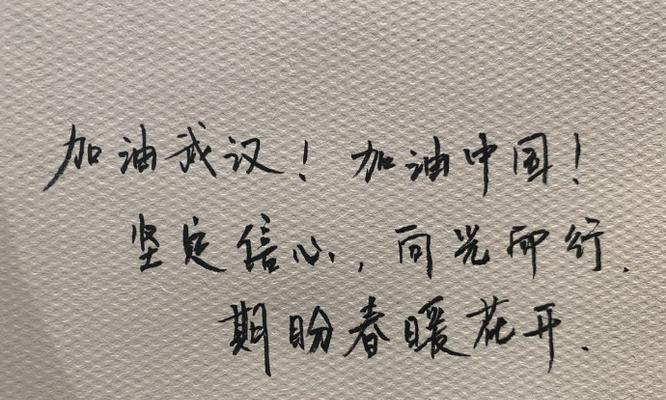 加油武汉！加油中国！
坚定信心，向光而行．
期盼春暖花开．